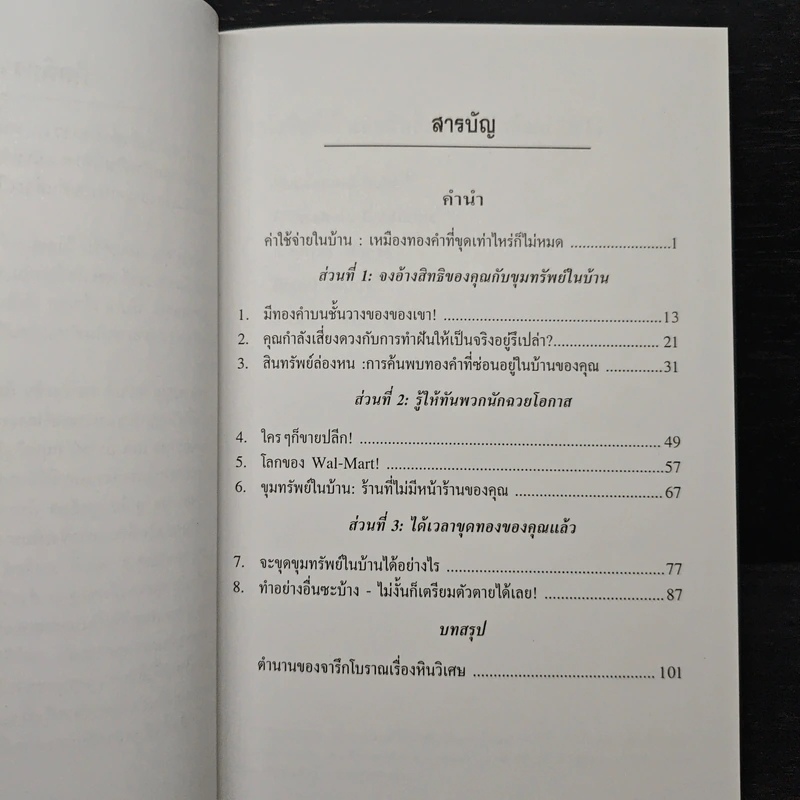 สารบัญ
คำนำ
ค่าใช้จ่ายในบ้าน : เหมืองทองคำที่ขุดเท่าไหร่ก็ไม่หมด ........................1
ส่วนที่ 1: จงอ้างสิทธิของคุณกับขุมทรัพย์ในบ้าน
1. มีทองคำบนชั้นวางของของเขา! ......................................................13
2. คุณกำลังเสี่ยงดวงกับการทำฝันให้เป็นจริงอยู่รึเปล่า?......................... 21
3. สินทรัพย์ล่องหน :การค้นพบทองคำที่ซ่อนอยู่ในบ้านของคุณ ..............31
ส่วนที่ 2: รู้ให้ทันพวกนักฉวยโอกาส
4. ใครๆก็ขายปลีก! ......................................................................... 49
5. โลกของ Wal-Mart! ....................................................................57
6. ขุมทรัพย์ในบ้าน: ร้านที่ไม่มีหน้าร้านของคุณ ................................... 67
ส่วนที่ 3: ได้เวลาขุดทองของคุณแล้ว
7. จะขุดขุมทรัพย์ในบ้านได้อย่างไร .....................................................77
8. ทำอย่างอื่นซะบ้าง - ไม่งั้นก็เตรียมตัวตายได้เลย! ............................ 87
บทสรุป
ตำนานของจารึกโบราณเรื่องหินวิเศษ ........................................... 101